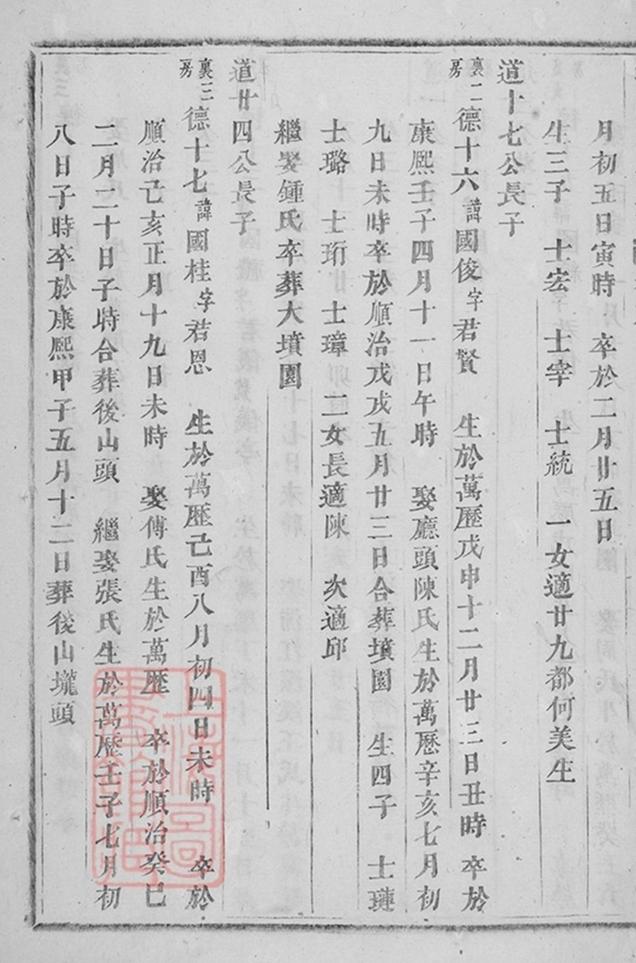 月初五日寅時　卒於二月廿五日
生三子　士宏　士宰　士統　一女適廿九都何美生
道十七公長子
裏二房　德十六諱國俊字君賢　生於萬歷戊申十二月廿三日丑時　卒於
康熙壬子四月十一日午時　娶廳頭陳氏生於萬歷辛亥七月初
九日未時卒於順治戊戌五月廿三日合葬墳園　生四子　士璉
士璐　士珩　士璋　二女長適陳　次適邱
繼娶鍾氏卒葬大墳園
道廿四公長子
裏三房　德十七諱國桂字君恩　生於萬歷己酉八月初四日未時　卒於
順治己亥正月十九日未時　娶傅氏生於萬歷　卒於順治癸巳
二月二十日子時合葬後山頭　繼娶張氏生於萬歷壬子七月初
八日子時卒於康熙甲子五月十二日葬後山壠頭